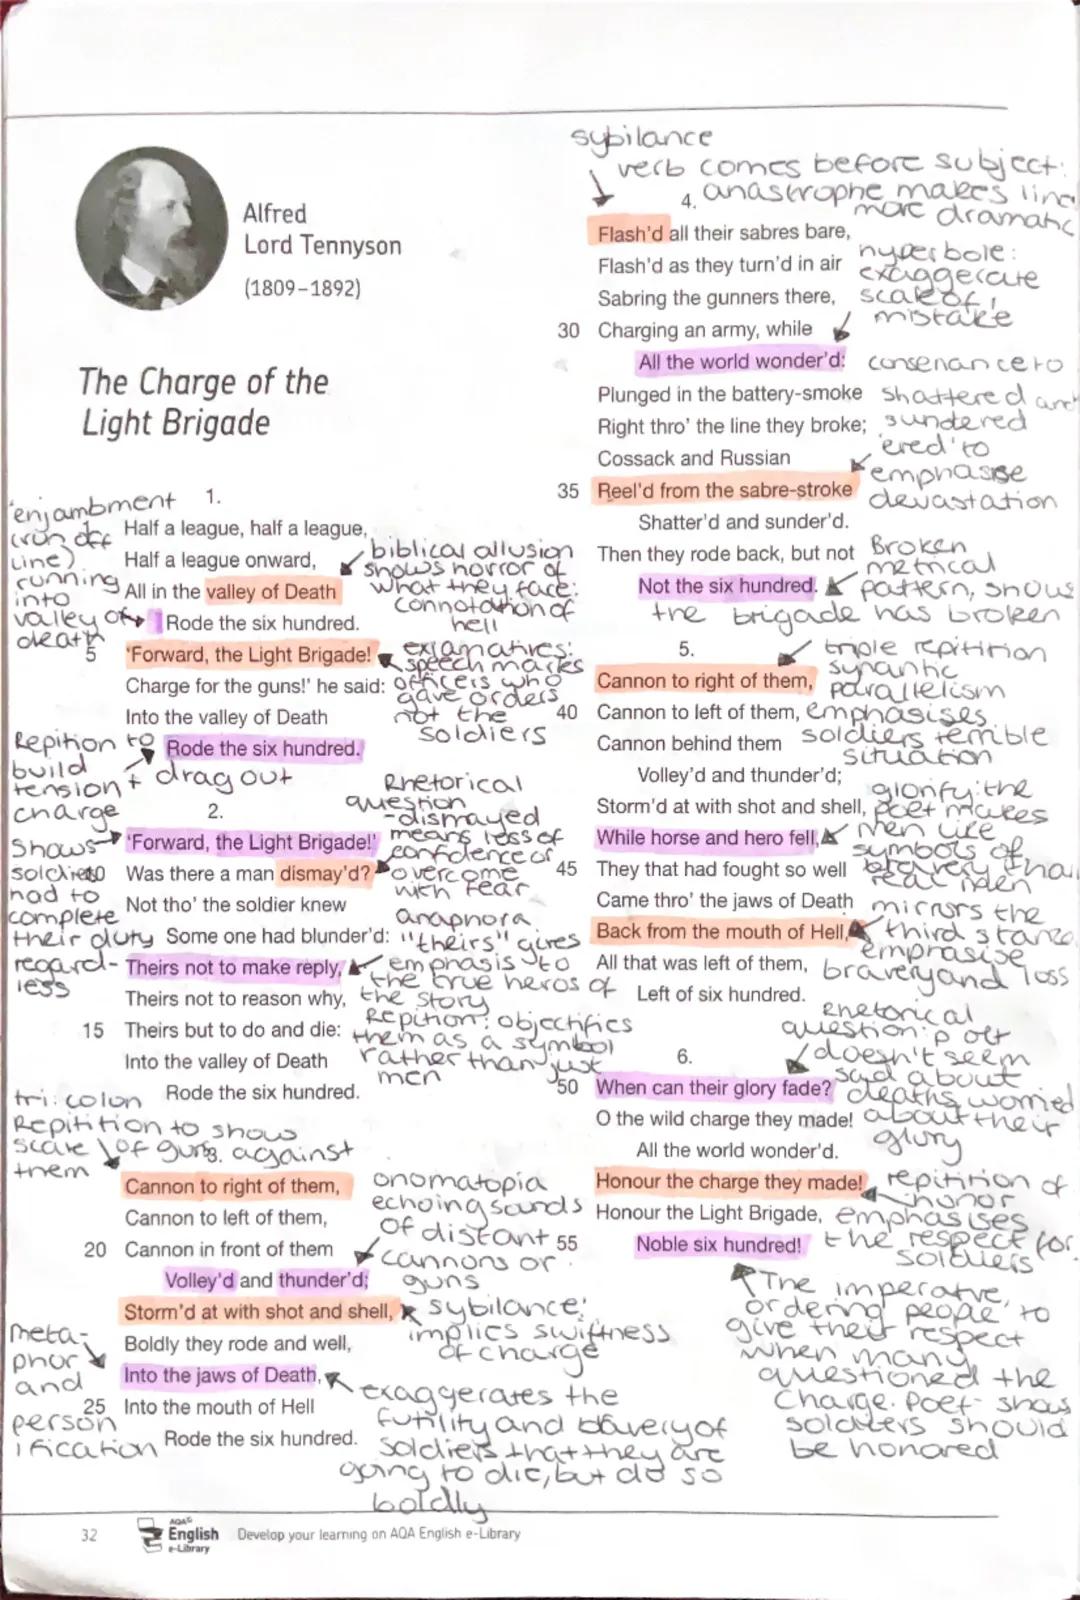 Alfred
Lord Tennyson
(1809–1892)
The Charge of the
Light Brigade
'enjambment
(run off
line)
running
into
valley of
death
1.
Half a league, half a league,
Half a league onward,
All in the valley of Death
Rode the six hundred.
5 'Forward, the Light Brigade!
Charge for the guns!' he said:
Into the valley of Death
Rode the six hundred.
biblical allusion
shows horror of
what they face:
connotation of
hell
exlamatives:
speech marks
officers who
gave orders
not the
soldiers
Repition to
build
tension +
charge
drag out
2.
'Forward, the Light Brigade!'
Was there a man dismay'd?
Not tho' the soldier knew
Some one had blunder'd:
Theirs not to make reply,
Theirs not to reason why,
15 Theirs but to do and die:
Into the valley of Death
Rode the six hundred.
Shows
soldiers
had to
complete
their duty
regard-
less
Rhetorical
question
-dismayed
means loss of
confidence or
overcome
with fear
anaphora
"theirs" gives
emphasis to
the true heros of
the story
Repition: objectifies
them as a symbol
rather than just
men
tri: colon
Repitition to show
scale of guns against
them
3.
Cannon to right of them,
Cannon to left of them,
20 Cannon in front of them
Volley'd and thunder'd;
Storm'd at with shot and shell,
Boldly they rode and well,
Into the jaws of Death,
25 Into the mouth of Hell
Rode the six hundred.
onomatopia
echoing sounds
of distant
cannons or
guns
sybilance:
implies swiftness
of charge
meta-
phor
and
person
ification
exaggerates the
futility and bavery of
soldiers that they are
going to die, but do so
boldly
sybilance
verb comes before subject:
anastrophe makes line
more dramatic
4.
Flash'd all their sabres bare,
Flash'd as they turn'd in air
Sabring the gunners there,
30 Charging an army, while
All the world wonder'd:
Plunged in the battery-smoke
Right thro' the line they broke;
Cossack and Russian
35 Reel'd from the sabre-stroke
Shatter'd and sunder'd.
Then they rode back, but not
Not the six hundred.
hyperbole:
exaggerate
scale of
mistake
consenance to
shattered and
sundered
'ered' to
emphasise
devastation
Broken
metrical
pattern, shows
the brigade has broken
5.
Cannon to right of them,
40 Cannon to left of them,
Cannon behind them
Volley'd and thunder'd;
Storm'd at with shot and shell,
While horse and hero fell,
45 They that had fought so well
Came thro' the jaws of Death
Back from the mouth of Hell,
All that was left of them,
Left of six hundred.
triple repitition
synantic
parallelism
emphasises
soldiers terrible
situation
glorify: the
poet makes
men like
symbols of
bravery than
real men
mirrors the
third stanza
emphasise
bravery and loss
6.
50 When can their glory fade?
O the wild charge they made!
All the world wonder'd.
Honour the charge they made!
Honour the Light Brigade,
55 Noble six hundred!
Rhetorical
question: poet
doesn't seem
sad about
deaths, worried
about their
glory
repitition of
honor
emphasises
the respect for
soldiers
The imperative,
ordering people to
give their respect
when many
questioned the
charge. Poet shows
soldiers should
be honored
32
AQA
English
e-Library
Develop your learning on AQA English e-Library